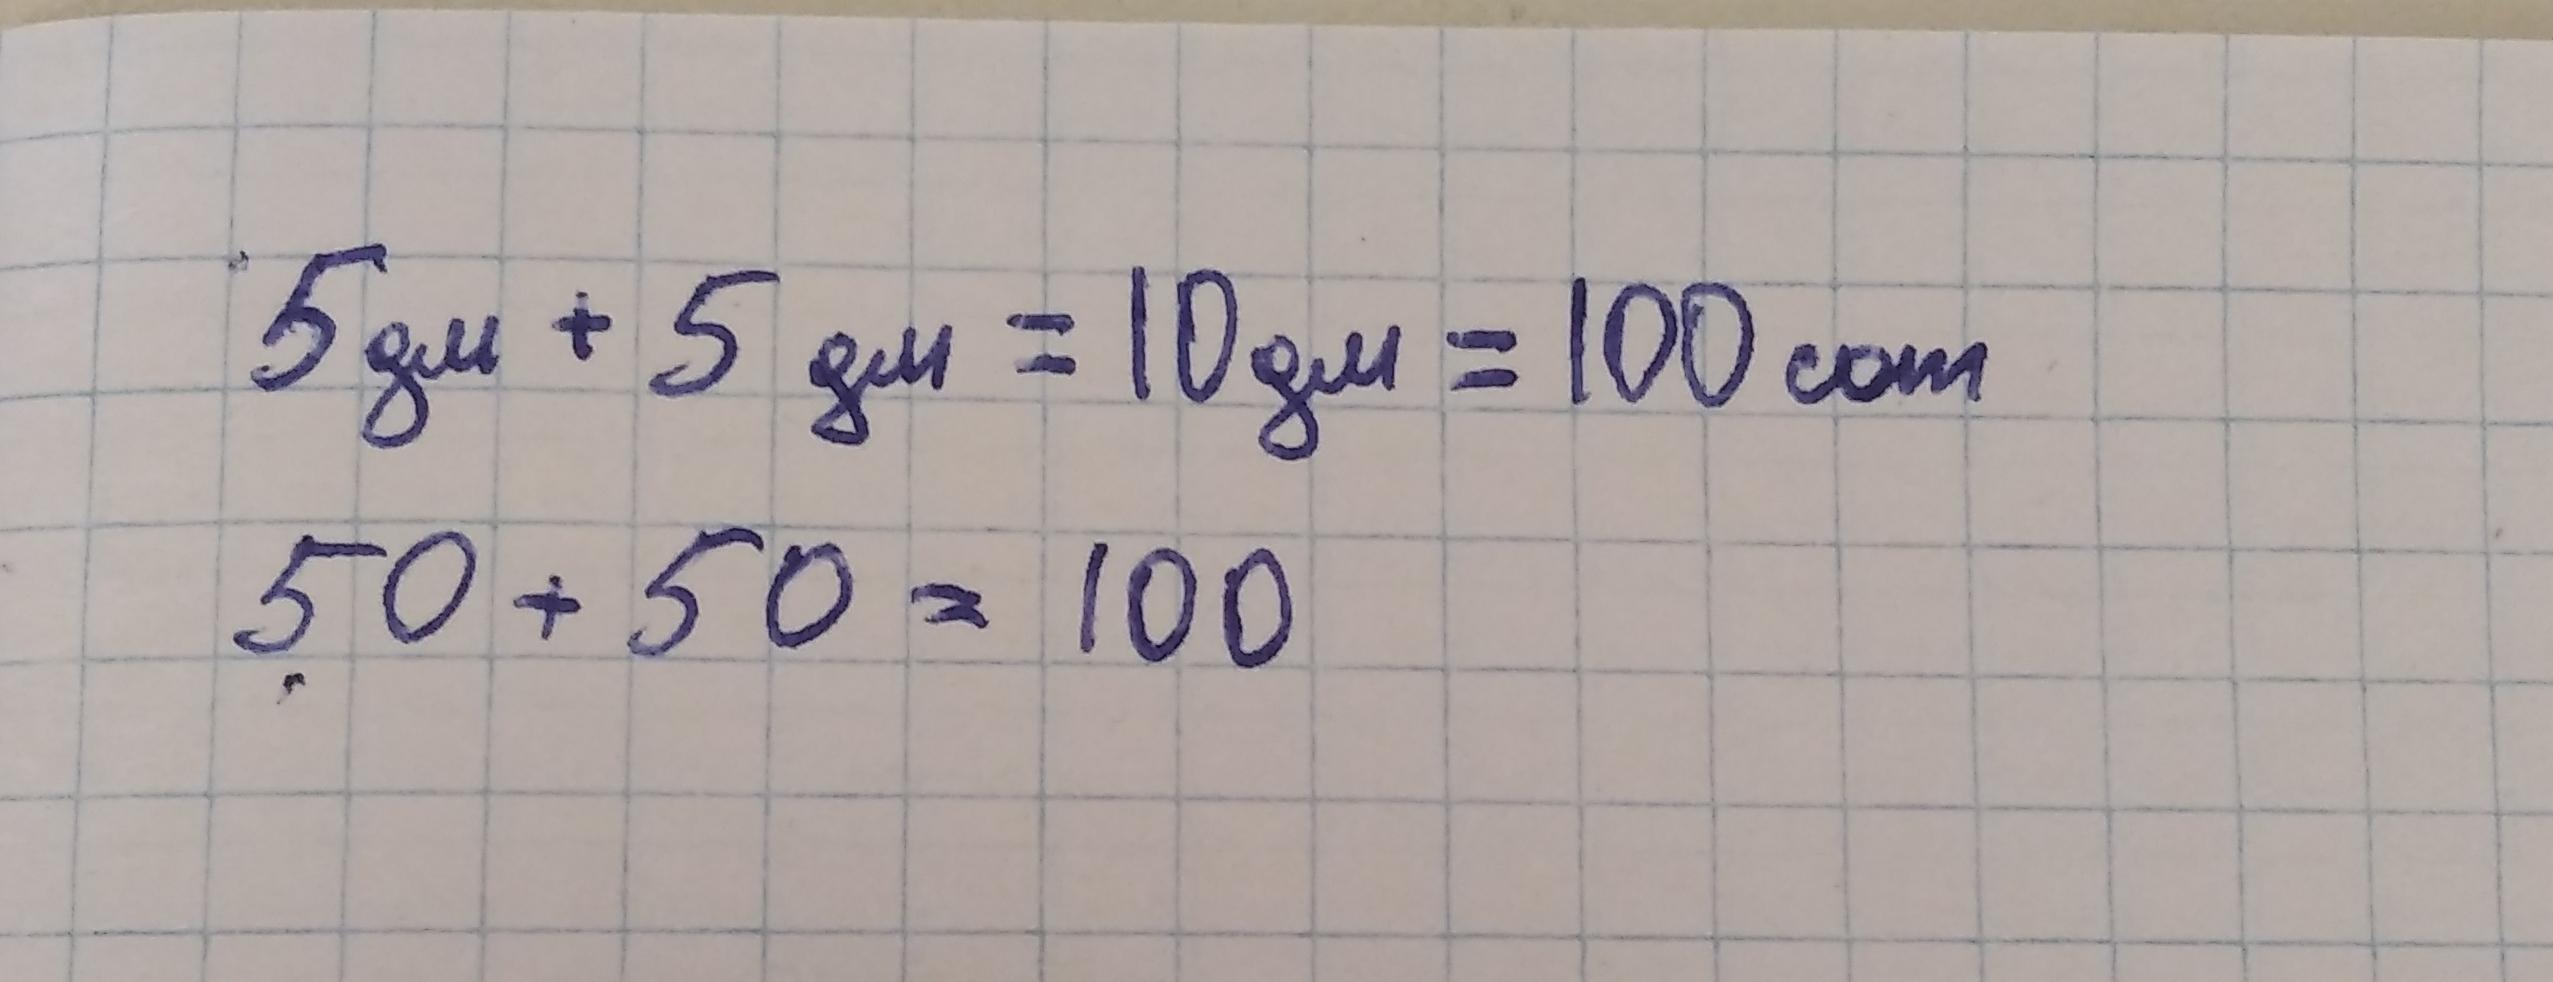 5 дм + 5 дм = 10 дм = 100 сот
50 + 50 = 100